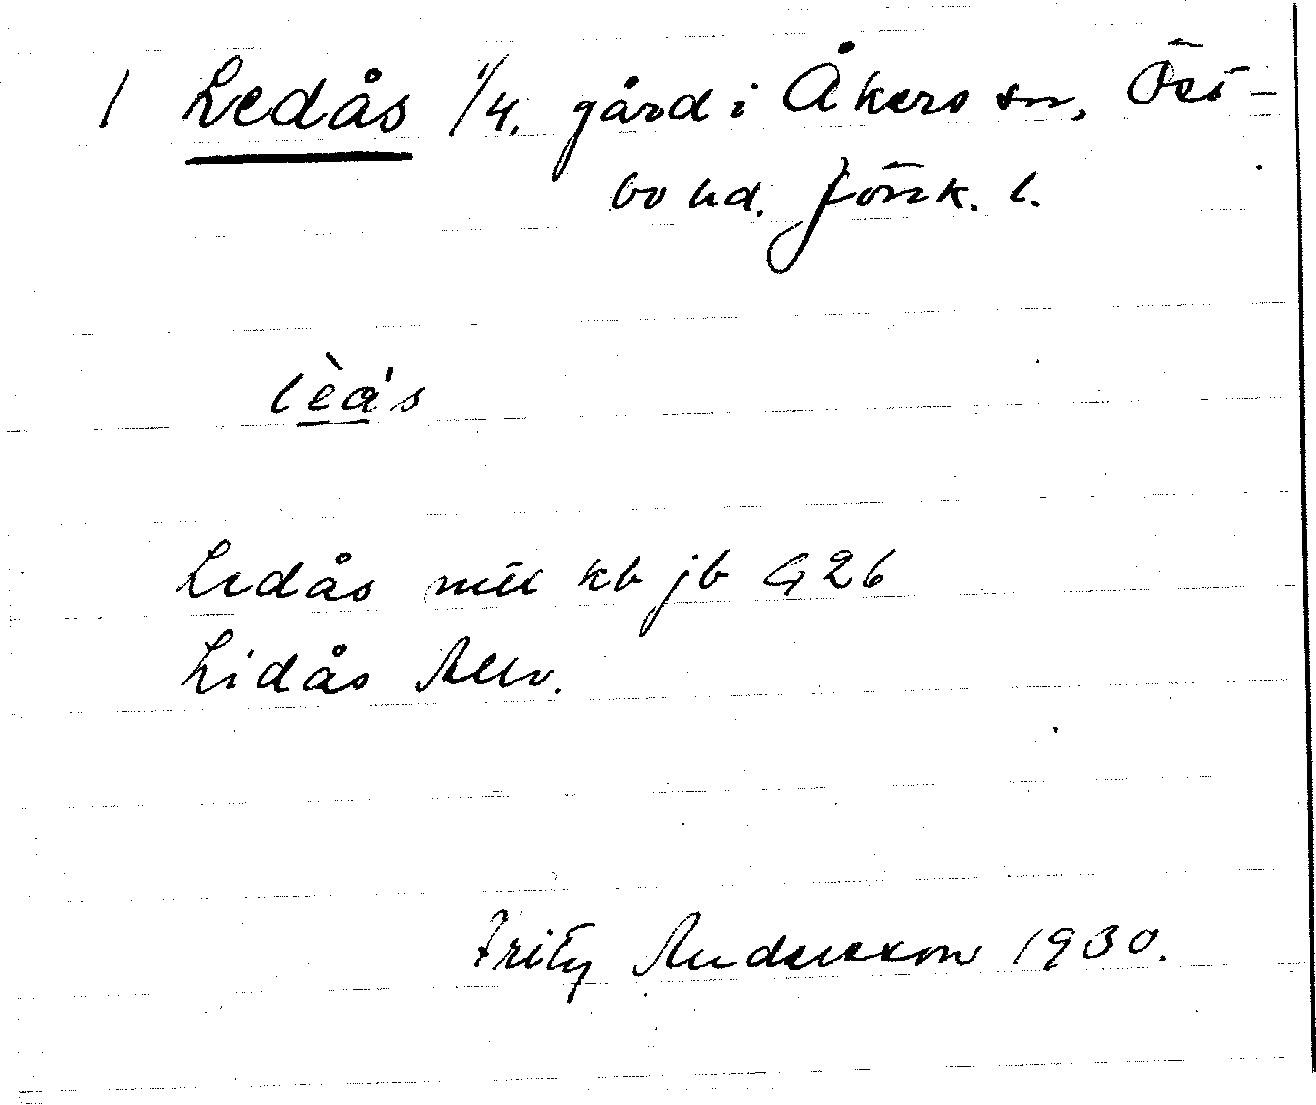 1 Ledås 1/4. gård i Åkers sn, Öst-
bo hd. Jönk. l.
lèa's
Ledås mtl kb jb G 26
Lidås Allv.
Fritz Andersson 1930.